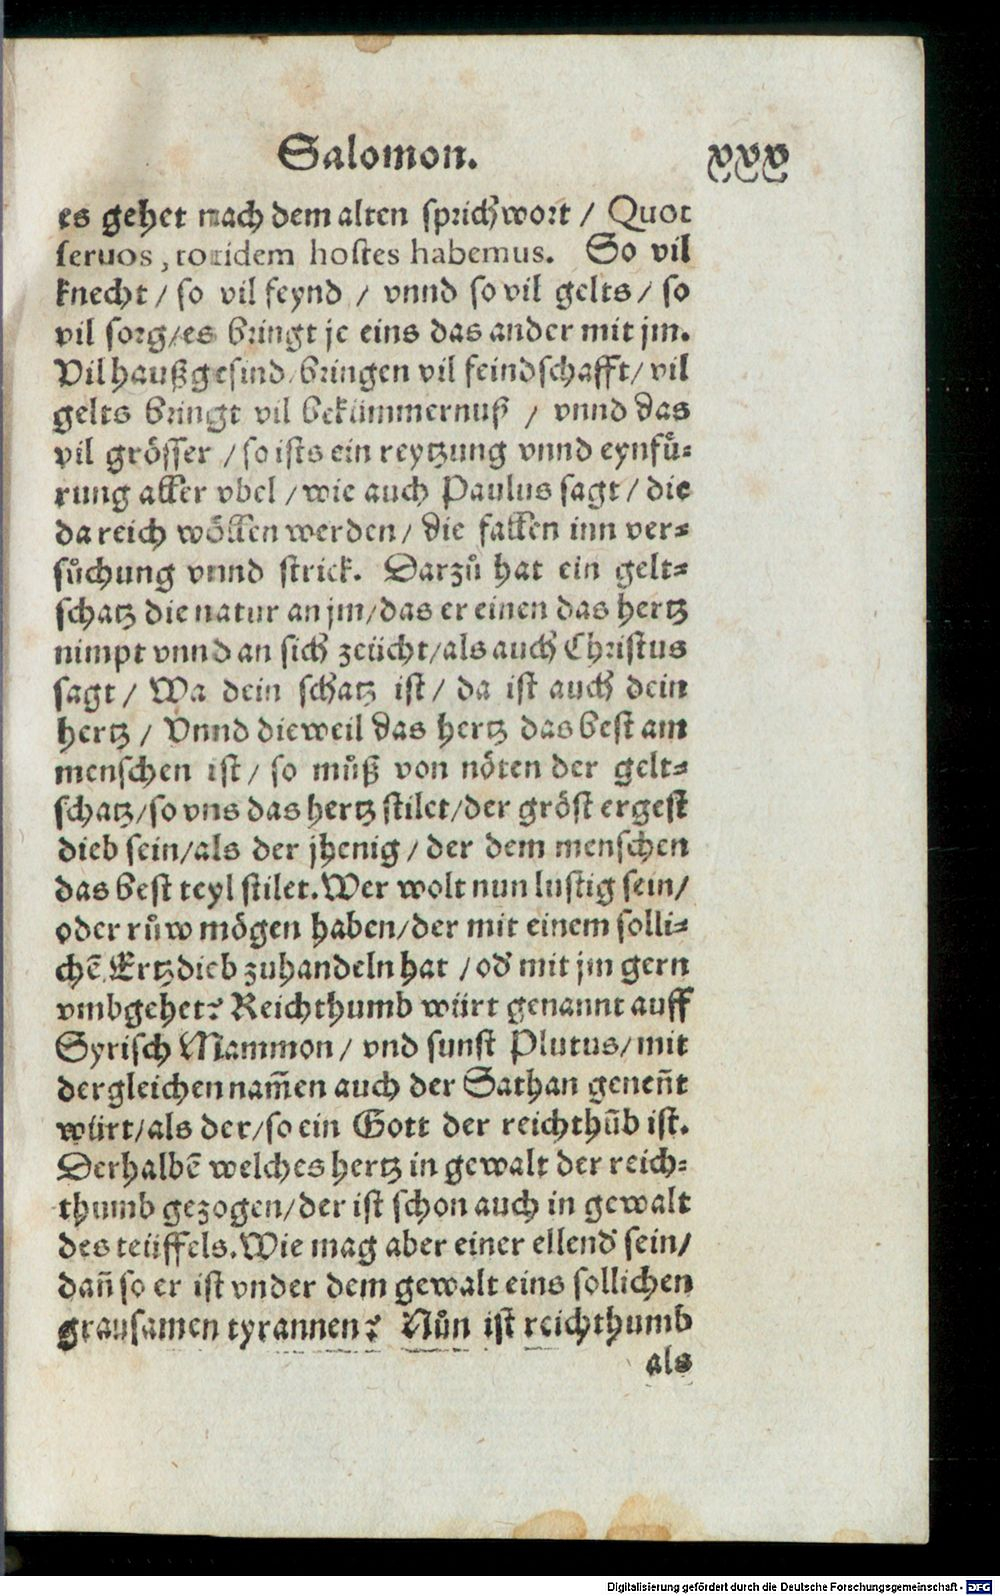 Salomon. xxx
es gehet nach dem alten sprichwort / Quot
seruos, totidem hostes habemus. So vil
knecht / so vil feynd / vnnd so vil gelts / so
vil sorg / es bringt je eins das ander mit jm.
Vil haußgesind / bringen vil feindschafft / vil
gelts bringt vil bekümmernuß / vnnd das
vil grösser / so ists ein reytzung vnnd eynfuͤ⸗
rung aller vbel / wie auch Paulus sagt / die
da reich wöllen werden / die fallen inn ver⸗
suͦchung vnnd strick. Darzuͦ hat ein gelt⸗
schatz die natur an jm / das er einen das hertz
nimpt vnnd an sich zeücht / als auch Christus
sagt / Wa dein schatz ist / da ist auch dein
hertz / Vnnd dieweil das hertz das best am
menschen ist / so muͦß von nöten der gelt⸗
schatz / so vns das hertz stilet / der gröst ergest
dieb sein / als der jhenig / der dem menschen
das best teyl stilet. Wer wolt nun lustig sein /
oder ruͦw mögen haben / der mit einem solli⸗
chē Ertzdieb zuhandeln hat / od' mit jm gern
vmbgehet? Reichthumb würt genannt auff
Syrisch Mammon / vnd sunst Plutus / mit
dergleichen nam̄en auch der Sathan genen̄t
würt / als der / so ein Gott der reichthūb ist.
Derhalbē welches hertz in gewalt der reich⸗
thumb gezogen / der ist schon auch in gewalt
des teüffels. Wie mag aber einer ellend' sein /
dan̄ so er ist vnder dem gewalt eins sollichen
grausamen tyrannen? Nuͦn ist reichthumb
als
Digitalisierung gefördert durch die Deutsche Forschungsgemeinschaft - DFG